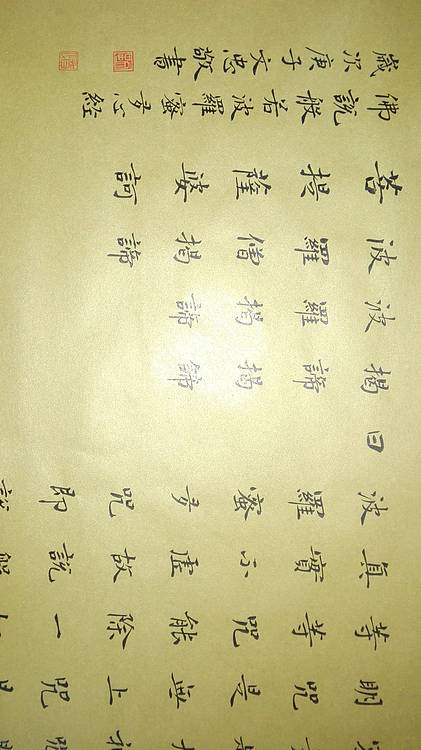 明咒是無上咒是
等等咒能除一切
真實不虛故說般
波羅蜜多咒即說
曰
揭諦揭諦
波羅揭諦
波羅僧揭諦
菩提薩婆訶
佛說般若波羅蜜多心経
歲次庚子文忠敬書